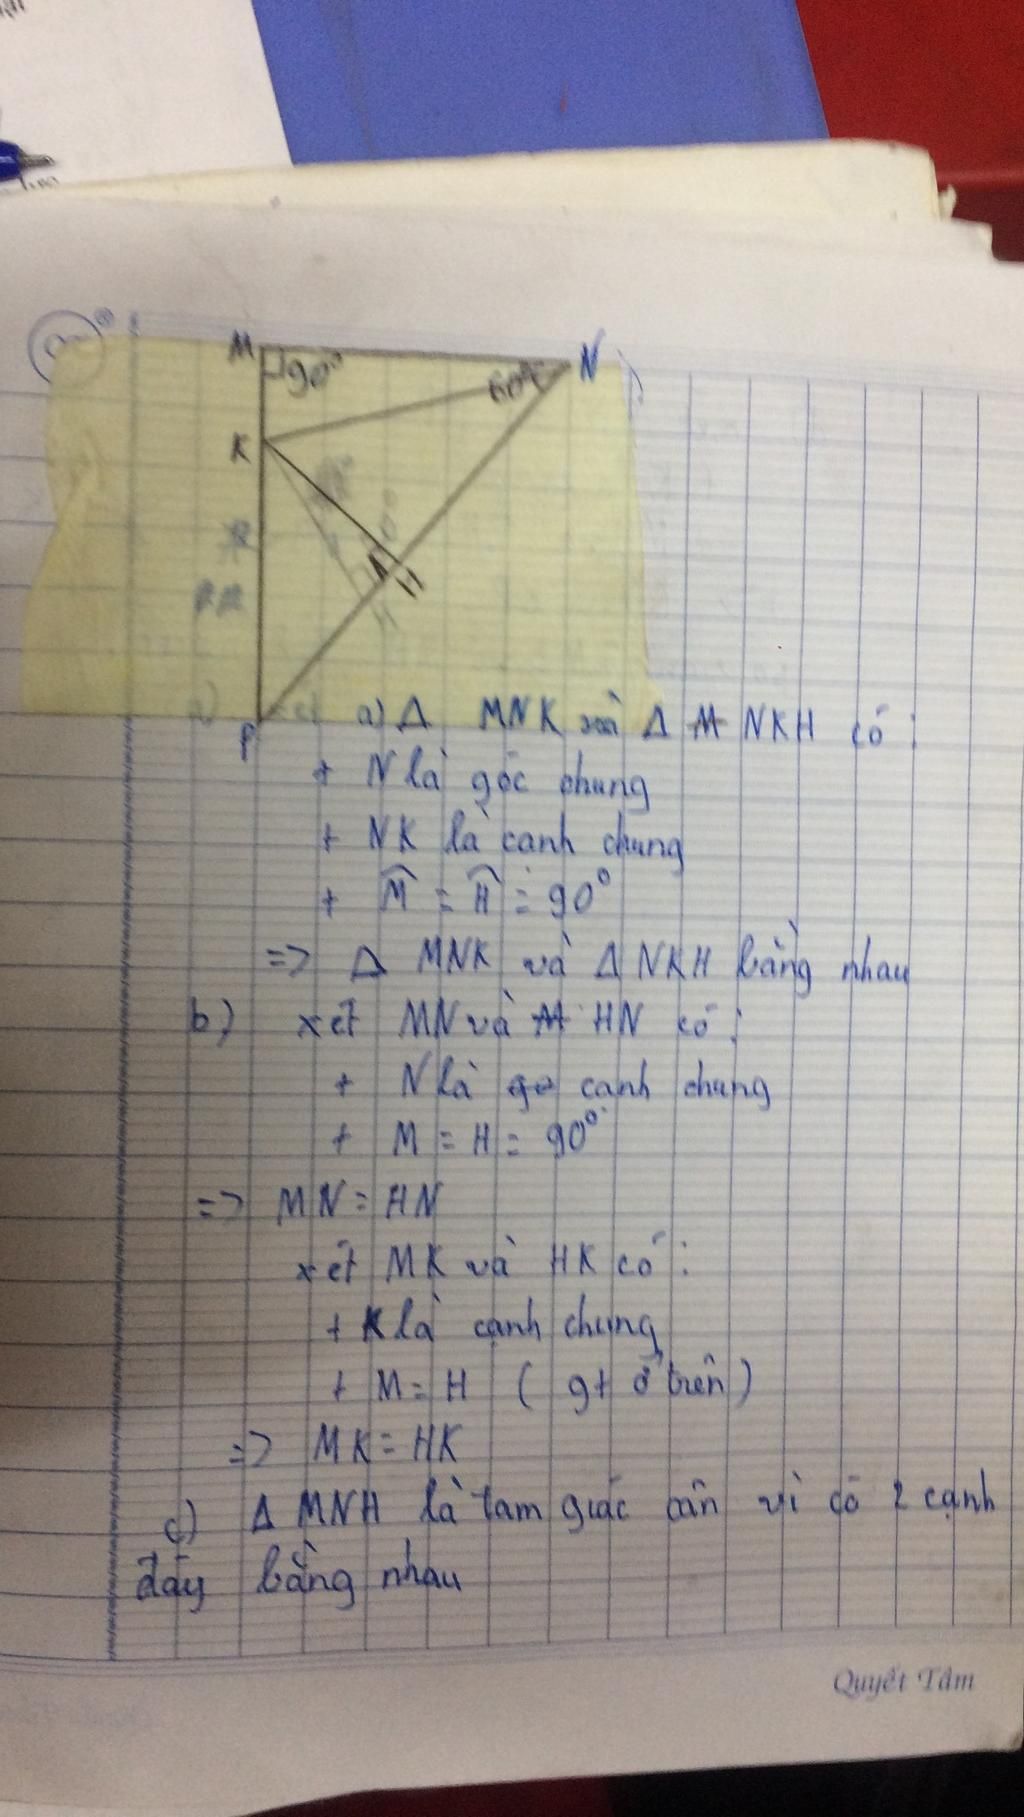 M
90°
60°
N
K
H
P
a) Δ MNK và Δ NKH có :
+ N là góc chung
+ NK là cạnh chung
+ M̂ = Ĥ = 90°
=> Δ MNK và Δ NKH bằng nhau
b) xét MN và HN có :
+ N là cạnh chung
+ M = H = 90°
=> MN = HN
xét MK và HK có :
+ K là cạnh chung
+ M = H ( gt ở trên )
=> MK = HK
c) Δ MNH là tam giác cân vì có 2 cạnh
đáy bằng nhau
Quyết Tâm